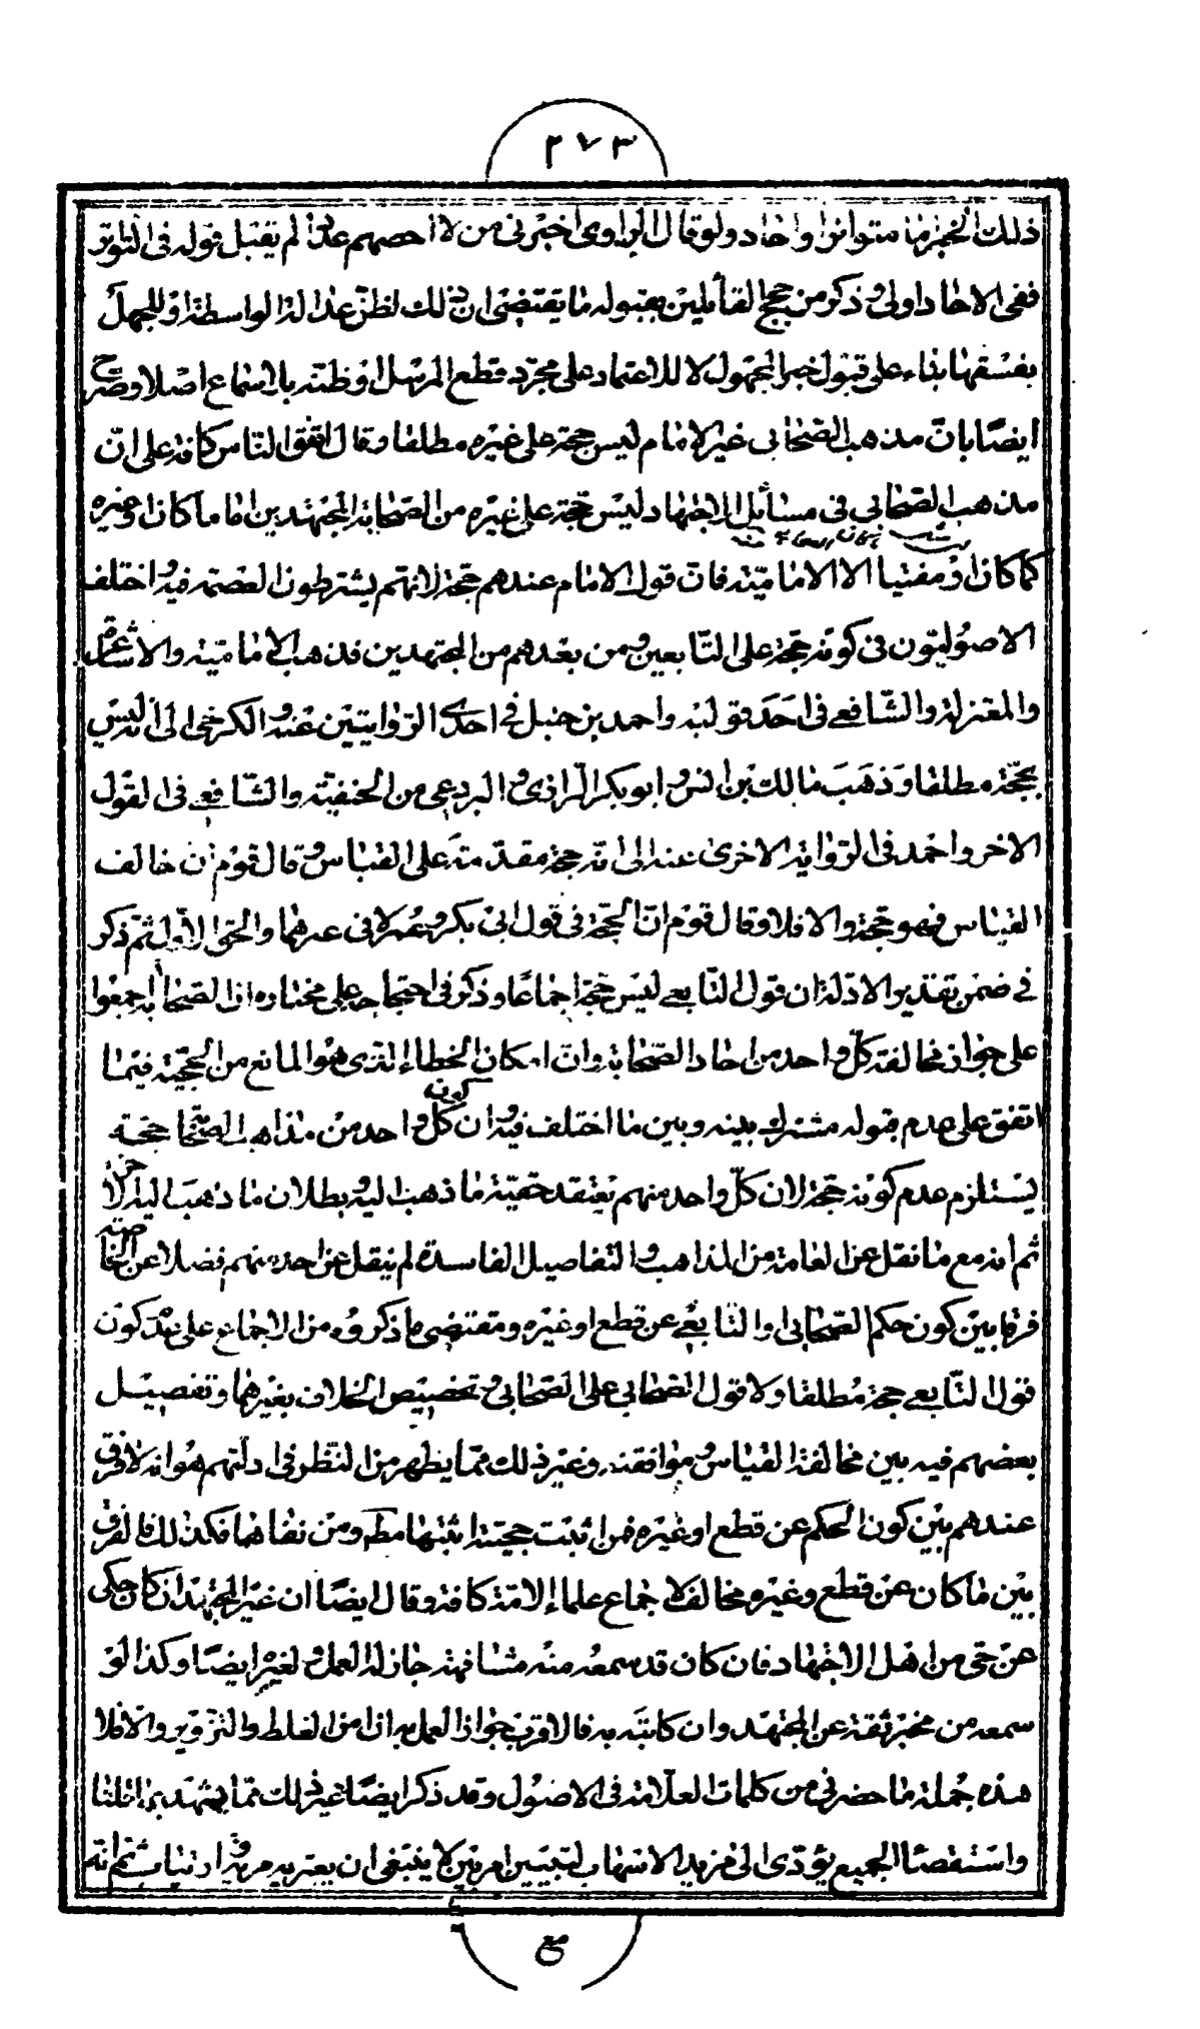 ٢٧٣
ذلك الخبر اما متواترا واحاد ولو قال الراوى اخبرنى من لا احصيهم عددا لم يقبل قوله فى التواتر
ففى الاحاد اولى وذكر من حجج القائلين بقبوله ما يقتضى ان ذلك لظن عدالة الواسطة او للجهل
بفسقها بناء على قبول خبر المجهول لا للاعتماد على مجرد قطع المرسل او ظنه بالسماع اصلا وصرح
ايضا بان مذهب الصحابى غير الامام ليس حجة على غيره مطلقا وقال اتفق الناس كافة على ان
مذهب الصحابى فى مسائل الاجتهاد ليس حجة على غيره من الصحابة المجتهدين اماما كان او غيره
كما كان او مفتيا الا الامامية فان قول الامام عندهم حجة لانهم يشترطون العصمة فيه واختلف
الاصوليون فى كونه حجة على التابعين ومن بعدهم من المجتهدين فذهب الامامية والاشاعرة
والمعتزلة والشافعى فى احد قوليه واحمد بن حنبل فى احدى الروايتين عنه والكرخى الى انه ليس
بحجة مطلقا وذهب مالك بن انس وابو بكر الرازى والبردعى من الحنفية والشافعى فى القول
الاخر واحمد فى الرواية الاخرى عنه الى انه حجة مقدمة على القياس وقال قوم ان خالف
القياس فهو حجة والا فلا وقال قوم ان الحجة فى قول ابى بكر وعمر لا فى غيرهما والحق الاول ثم ذكر
فى ضمن تقدير الادلة ان قول التابعى ليس حجة اجماعا وذكر فى احتجاجه على مختاره ان الصحابة اجمعوا
على جواز مخالفة كل واحد من احاد الصحابة وان امكان الخطاء الذى هو المانع من الحجية فيما
اتفق على عدم قبوله مشترك بينه وبين ما اختلف فيه وان كون كل واحد من مذاهب الصحابة حجة
يستلزم عدم كونه حجة لان كل واحد منهم يعتقد حقية ما ذهب اليه وبطلان ما ذهب اليه الاخر
ثم انه مع ما نقل عن العامة من المذاهب والتفاصيل الفاسدة لم ينقل عن احد منهم فضلا عن الخاصة
فرقا بين كون حكم الصحابى او التابعى عن قطع او غيره ومقتضى ما ذكروه من الاجماع على عدم كون
قول التابعى حجة مطلقا ولا قول الصحابى على الصحابى وتخصيص الخلاف بغيرهما وتفصيل
بعضهم فيه بين مخالفة القياس وموافقته وغير ذلك مما يظهر من النظر فى ادلتهم هو انه لا فرق
عندهم بين كون الحكم عن قطع او غيره فمن اثبت حجيته اثبتها مط ومن نفاها فكذلك فالفرق
بين ما كان عن قطع وغيره مخالف لاجماع علماء الامة كافة وقال ايضا ان غير المجتهد ان كان حكى
عن حى من اهل الاجتهاد فان كان قد سمعه منه مشافهة جاز له العمل ولغيره ايضا وكذا لو
سمعه من مخبر ثقة عن المجتهد وان كاتبه به فالاقرب جواز العمل به ان امن الغلط والتزوير والا فلا
هذه جملة ما حضرنى من كلمات العلامة فى الاصول وقد ذكر ايضا غير ذلك مما يشهد بما قلنا
واستقصاء الجميع يؤدى الى مزيد الاسهاب لتبيين امر بين لا ينبغى ان يعتريه مرية وارتياب ثم انه
مع